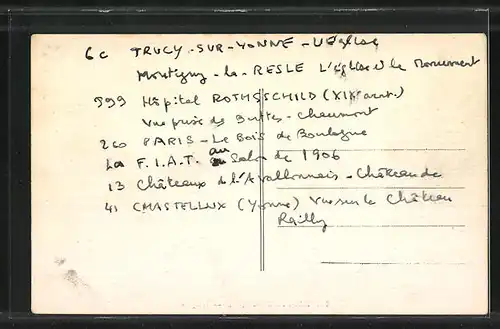 6c TRUCY-SUR-YONNE - L'Eglise
Montigny-la-RESLE L'Eglise et le Monument
599 Hôpital ROTHSSCHILD (XIXe arrt.)
Vue prise des Buttes-Chaumont
260 PARIS - Le Bois de Boulogne
La F.I.A.T. au Salon de 1906
13 Châteaux de l'Avallonnais - Château de
41 CHASTELLUX (Yonne) Vue sur le Château
Railly